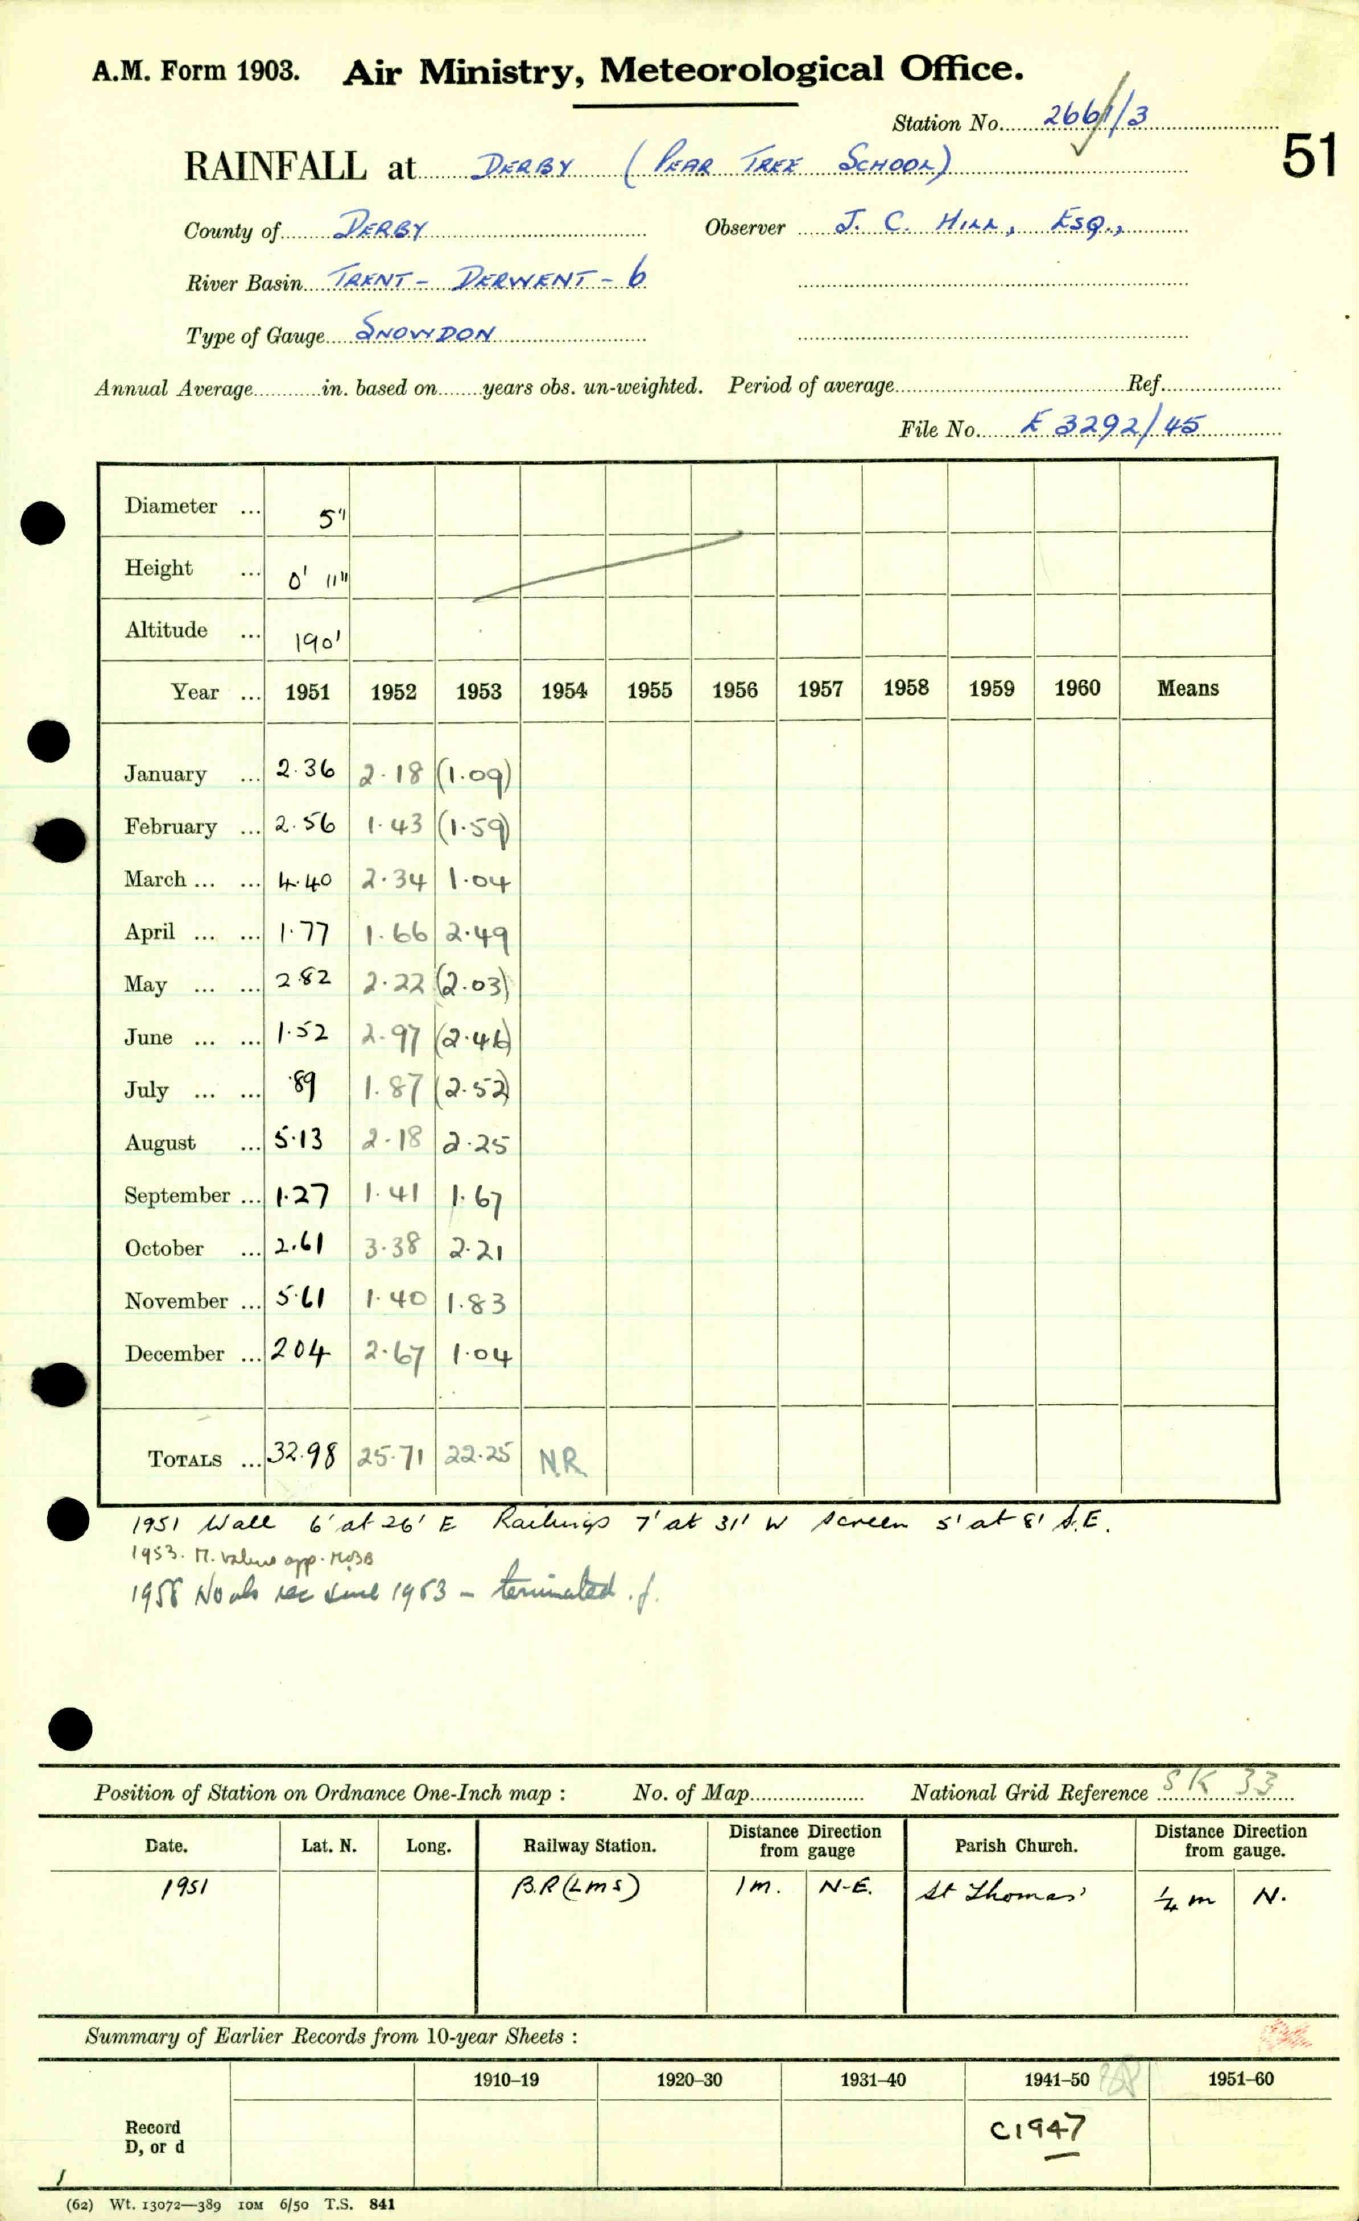 A.M. Form 1903. Air Ministry, Meteorological Office.
Station No. 2661/3
51
RAINFALL at DERBY (PEAR TREE SCHOOL)
County of DERBY Observer J. C. HILL, ESQ.,
River Basin TRENT - DERWENT - 6
Type of Gauge SNOWDON
Annual Average in. based on years obs. un-weighted. Period of average Ref.
File No. E 3292/45
Diameter ... 5"
Height ... 0' 11"
Altitude ... 190'
Year ... 1951 1952 1953 1954 1955 1956 1957 1958 1959 1960 Means
January ... 2.36 2.18 (1.09)
February ... 2.56 1.43 (1.59)
March ... ... 4.40 2.34 1.04
April ... ... 1.77 1.66 2.49
May ... ... 2.82 2.22 (2.03)
June ... ... 1.52 2.97 (2.46)
July ... ... .89 1.87 (2.52)
August ... 5.13 2.18 2.25
September ... 1.27 1.41 1.67
October ... 2.61 3.38 2.21
November ... 5.61 1.40 1.83
December ... 2 04 2.67 1.04
TOTALS ... 32.98 25.71 22.25 N.R.
1951 Wall 6' at 26' E Railings 7' at 31' W Screen 5' at 8' S.E.
1953. M. values app.
1958 No obs rec since 1953 - terminated.
Position of Station on Ordnance One-Inch map : No. of Map National Grid Reference SK 33
Date. Lat. N. Long. Railway Station. Distance Direction from gauge Parish Church. Distance Direction from gauge.
1951 B.R (LMS) 1 m. N-E. St Thomas' ¼ m N.
Summary of Earlier Records from 10-year Sheets :
1910–19 1920–30 1931–40 1941–50 1951–60
Record D, or d C1947
(62) Wt. 13072—389 10M 6/50 T.S. 841